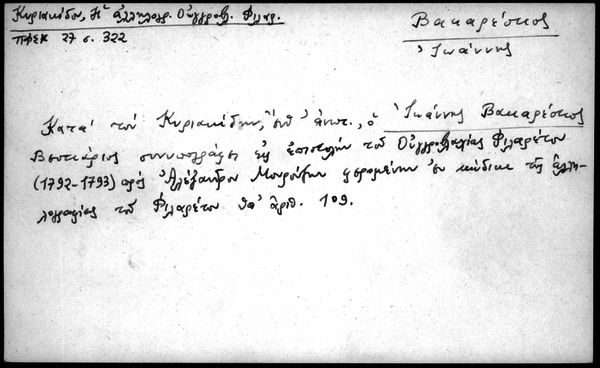 Κυριακίδου, Ἡ ἀλληλογρ. Οὑγγροβλ. Φιλαρ.
ΠΦΣΚ 27 σ. 322
Βακαρέσκος
Ἰωάννης
Κατὰ τὸν Κυριακίδην, ἔνθ' ἀνωτ., ὁ Ἰωάννης Βακαρέσκος
Βεστιάριος συνυπογράφει ἐπιστολὴν τοῦ Οὑγγροβλαχίας Φιλαρέτου
(1792-1793) πρὸς Ἀλέξανδρον Μουρούζην φερομένην ἐν κώδικι τῆς ἀλλη-
λογραφίας τοῦ Φιλαρέτου ὑπ' ἀριθ. 109.